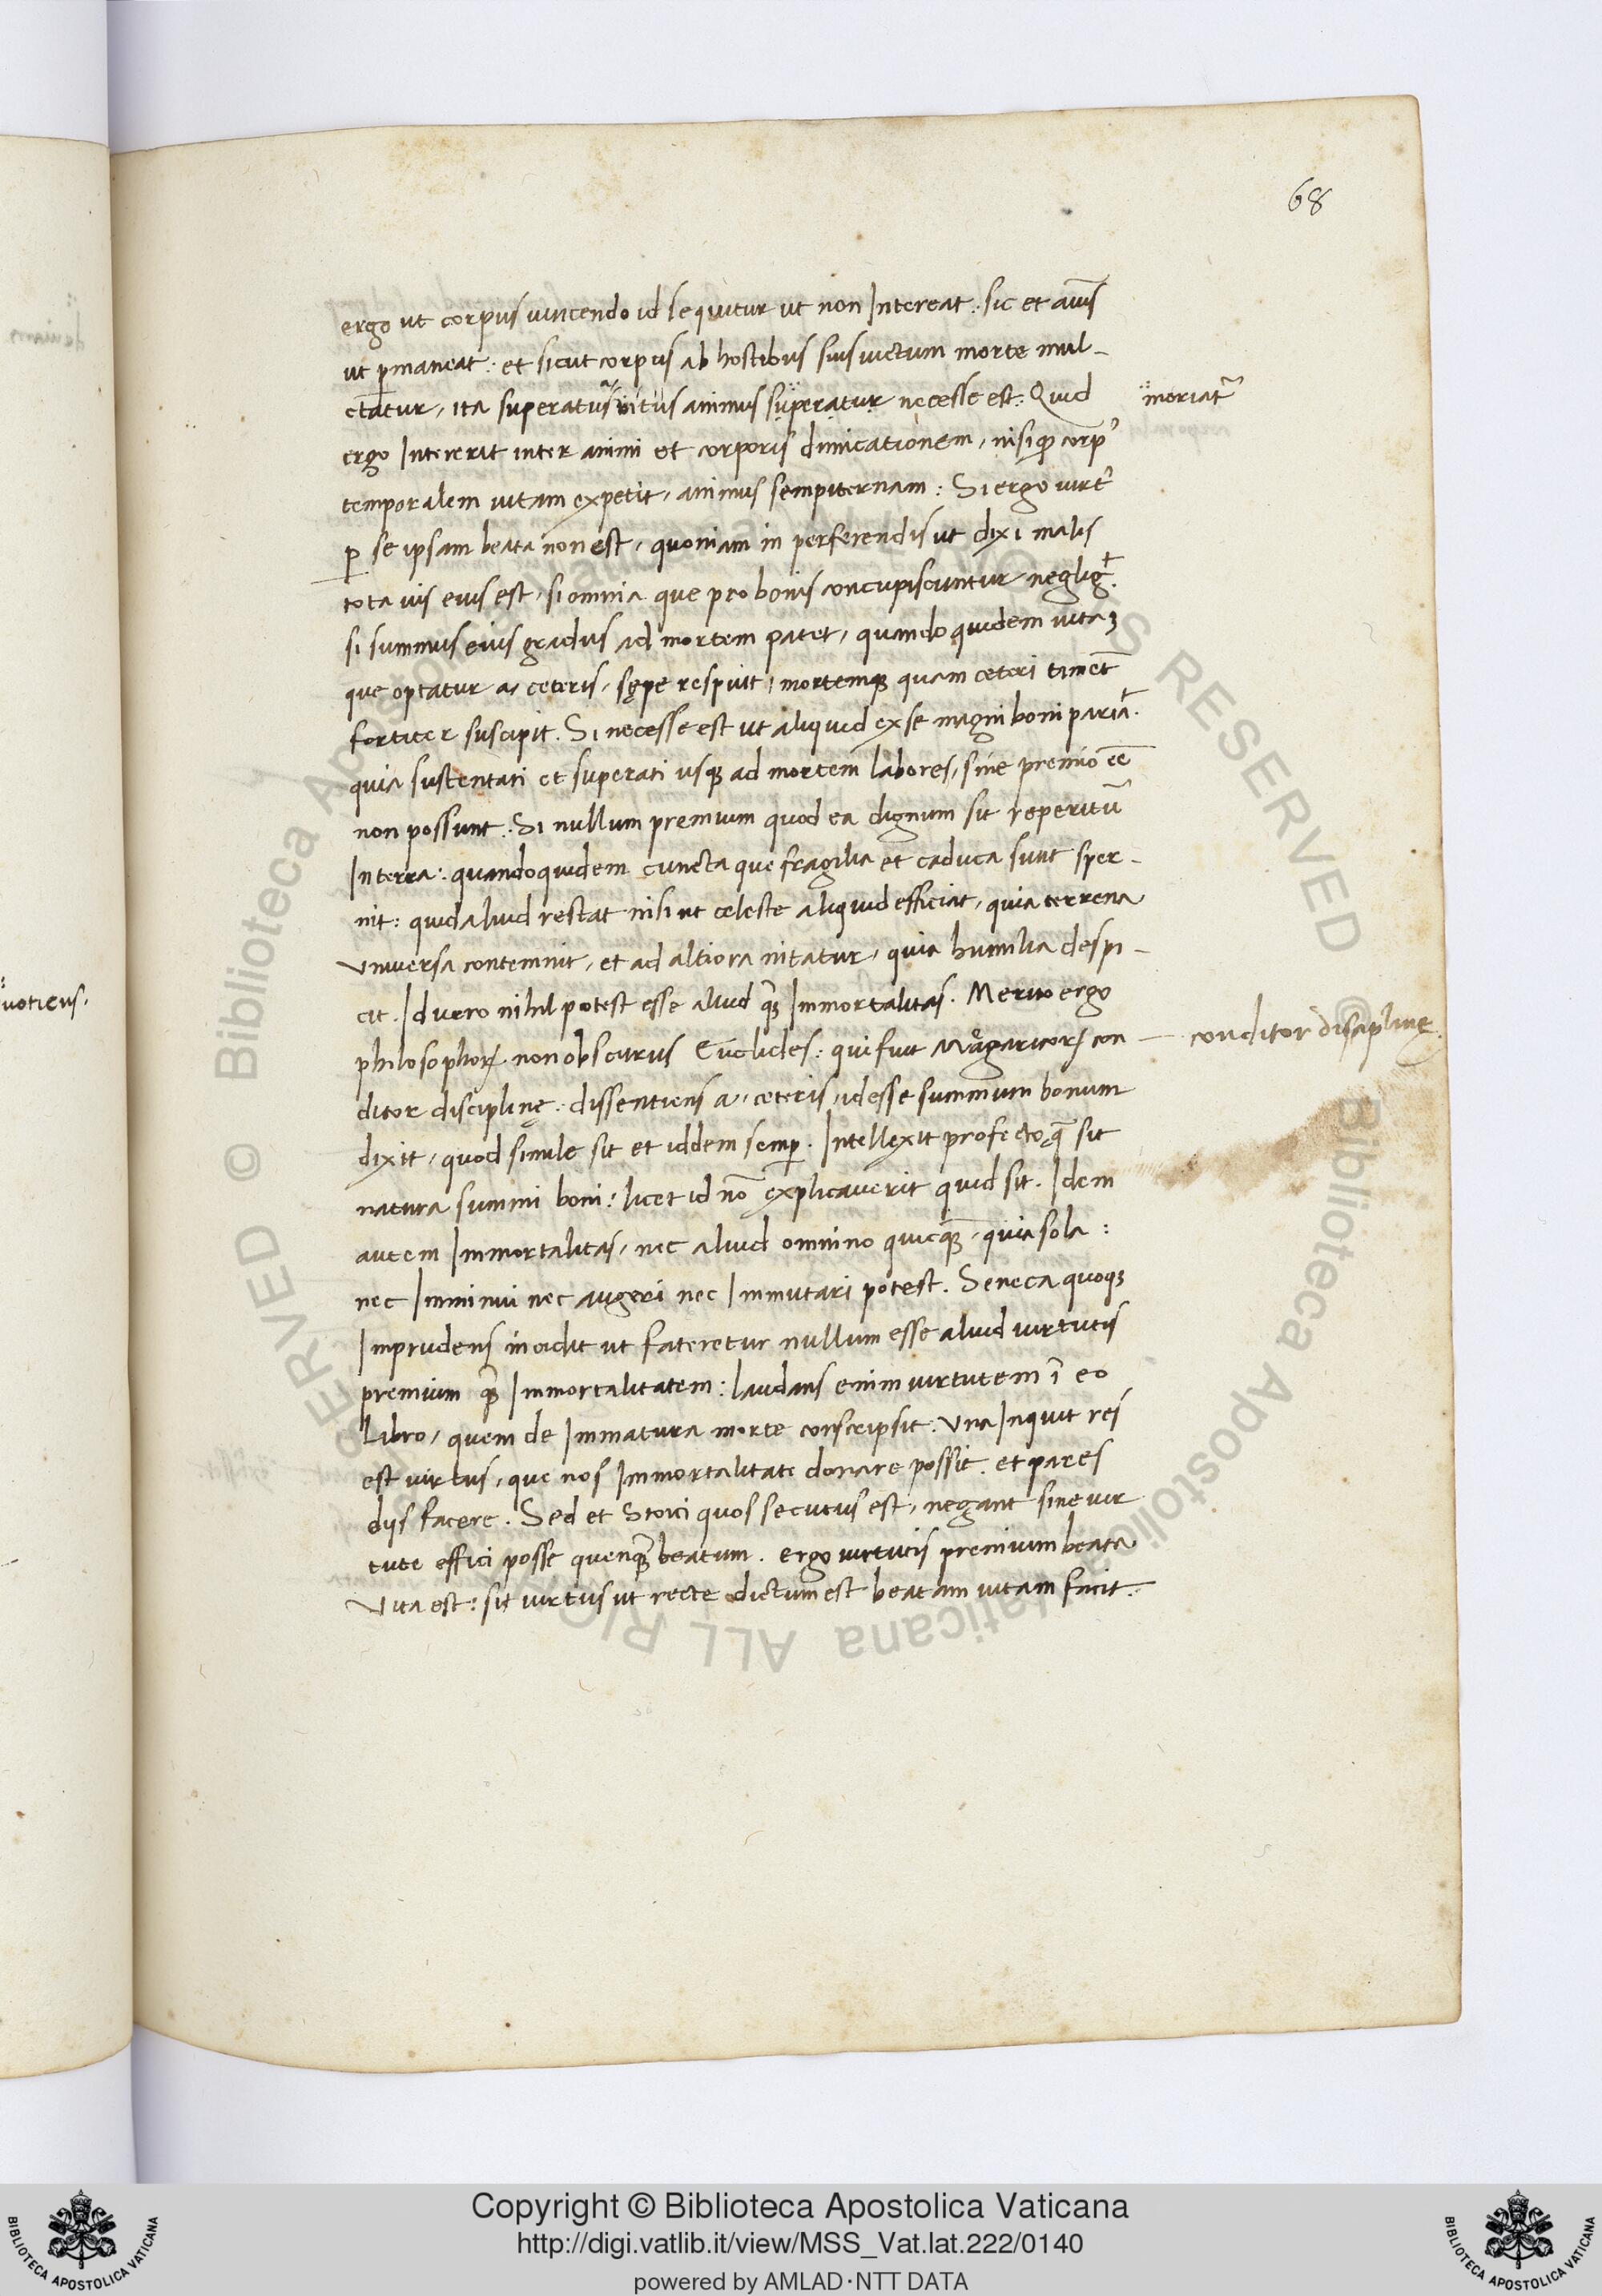 68
ergo ut corpus uincendo id sequitur ut non Intereat: sic et aīus
ut ꝑmaneat: et sicut corpus ab hostibus suis uictum morte mul-
ctatur, ita superatus a uitiis animus superatur necesse est: Quid
moriatᷣ
ergo Intererit inter animi et corporis dimicationem, nisi qꝫ corpꝰ
temporalem uitam expetit, animus sempiternam: Si ergo uirtꝰ
ꝑ se ipsam beata non est, quoniam in perferendis ut dixi malis
tota uis eius est, si omnia que pro bonis concupiscuntur negligᵗ.
si summus eius gradus ad mortem patet, quando quidem uitaꝫ
que optatur a ceteris, sępe respuit, mortemqꝫ quam ceteri timēt
fortiter suscipit. Si necesse est ut aliquid ex se magni boni pariāᵗ.
quia sustentati et superati usqꝫ ad mortem labores, sine premio eē
non possunt. Si nullum premium quod ea dignum sit reperitᷣ
In terra: quandoquidem cuncta que fragilia et caduca sunt sper-
nit: quid aliud restat nisi ut celeste aliquid efficiat, quia terrena
Vniuersa contemnit, et ad altiora nitatur, quia humilia despi-
cit. Id uero nihil potest esse aliud qꝫ̄ Immortalitas. Merito ergo
philosophoꝝ non obscurus Euclides: qui fuit Magaricoꝝ con
conditor disciplinę.
ditor disciplinę: dissentiens a ceteris, id esse summum bonum
dixit, quod simile sit et iddem semꝑ. Intellexit profecto q̄ sit
natura summi boni: licet id nō explicauerit quid sit. Idem
autem Immortalitas, nec aliud omnino quicqꝫ̄, quia sola:
nec Imminui nec augeri nec Immutari potest. Seneca quoqꝫ
Imprudens incidit ut fateretur nullum esse aliud uirtutis
premium qꝫ̄ Immortalitatem: laudans enim uirtutem ī eo
Libro, quem de Immatura morte conscripsit: Vna Inquit res
est uirtus, que nos Immortalitate donare possit et pares
dijs facere. Sed et Stoici quos secutus est, negant sine uir
tute effici posse quenqꝫ̄ beatum. ergo uirtutis premium beata
Vita est: sit uirtus ut recte dictum est beatam uitam facit.
uotiens.
© Biblioteca Apostolica Vaticana ALL RIGHTS RESERVED
Copyright © Biblioteca Apostolica Vaticana
http://digi.vatlib.it/view/MSS_Vat.lat.222/0140
powered by AMLAD·NTT DATA
BIBLIOTECA APOSTOLICA VATICANA
BIBLIOTECA APOSTOLICA VATICANA